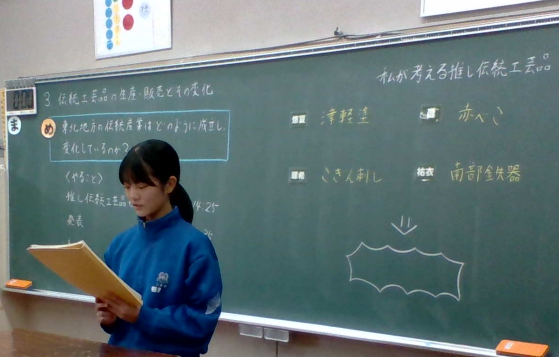 3 伝統工芸品の生産・販売とその変化
ま
め
東北地方の伝統産業はどのように成立し、
変化しているのか?
〈やること〉
推し伝統工芸品
14:25
発表
私が考える推し伝統工芸品
津軽塗
赤べこ
こぎん刺し
祐衣
南部鉄器